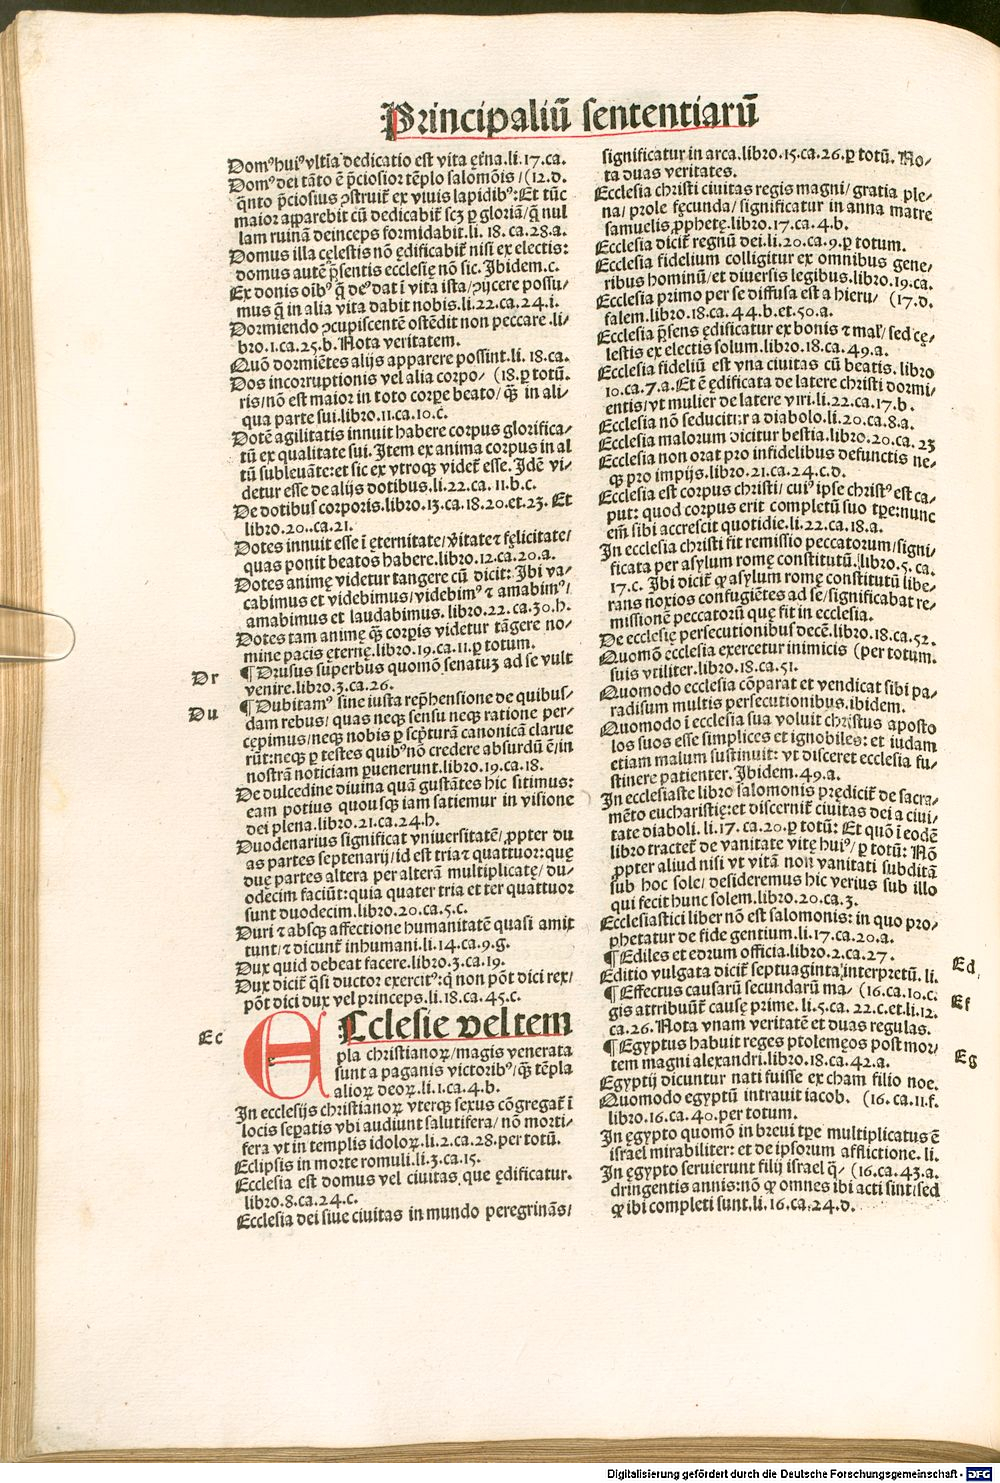 Principaliū sententiarū
Domꝰ huiꝰ vltīa dedicatio est vita ęt̄na. li. 17. ca.
Domꝰ dei tāto ē p̄ciosior tēplo salomōis / (12. d.
q̄nto p̄ciosius ꝯstruit̄ ex viuis lapidibꝰ: Et tūc
maior apparebit cū dedicabit̄ scꝫ ꝑ gloriā / q̄ nul
lam ruinā deinceps formidabit. li. 18. ca. 28. a.
Domus illa cęlestis nō ędificabit̄ nisi ex electis:
domus autē p̄sentis ecclesię nō sic. Ibidem. c.
Ex donis oībꝰ q̄ deꝰ dat ī vita ista / ꝯijcere possu-
mus q̄ in alia vita dabit nobis. li. 22. ca. 24. i.
Dormiendo ꝯcupiscentē ostēdit non peccare. li-
bro. 1. ca. 25. b. Nota veritatem.
Quō dormiētes alijs apparere possint. li. 18. ca.
Dos incorruptionis vel alia corpo- (18. ꝑ totū.
ris / nō est maior in toto corpe beato / q̄ꝫ in ali-
qua parte sui. libro. 11. ca. 10. c.
Dotē agilitatis innuit habere corpus glorifica-
tū ex qualitate sui. Item ex anima corpus in al
tū subleuāte: et sic ex vtroqꝫ videt̄ esse. Idē vi-
detur esse de alijs dotibus. li. 22. ca. 11. b. c.
De dotibus corporis. libro. 13. ca. 18. 20. et. 23. Et
libro. 20. ca. 21.
Dotes innuit esse ī ęternitate / v̄itate ⁊ fęlicitate /
quas ponit beatos habere. libro. 12. ca. 20. a.
Dotes animę videtur tangere cū dicit: Ibi va-
cabimus et videbimus / videbimꝰ ⁊ amabimꝰ /
amabimus et laudabimus. libro. 22. ca. 30. h.
Dotes tam animę q̄ꝫ corpis videtur tāgere no-
mine pacis ęternę. libro. 19. ca. 11. ꝑ totum.
Dr ¶ Drusus superbus quomō senatuꝫ ad se vult
venire. libro. 3. ca. 26.
Du ¶ Dubitamꝰ sine iusta rep̄hensione de quibus-
dam rebus / quas neqꝫ sensu neqꝫ ratione per-
cępimus / neqꝫ nobis ꝑ scp̄turā canonicā claruē
rūt: neqꝫ ꝑ testes quibꝰ nō credere absurdū ē / in
nostrā noticiam ꝑuenerunt. libro. 19. ca. 18.
De dulcedine diuina quā gustātes hic sitimus:
eam potius quousqꝫ iam satiemur in visione
dei plena. libro. 21. ca. 24. h.
Duodenarius significat vniuersitatē / ꝓpter du
as partes septenarij / id est tria ⁊ quattuor: quę
duę partes altera per alterā multiplicatę / du-
odecim faciūt: quia quater tria et ter quattuor
sunt duodecim. libro. 20. ca. 5. c.
Duri ⁊ absqꝫ affectione humanitatē quasi amit
tunt / ⁊ dicunt̄ inhumani. li. 14. ca. 9. g.
Dux quid debeat facere. libro. 3. ca. 19.
Dux dicit̄ q̄si ductor exercitꝰ: q̄ non pōt dici rex /
pōt dici dux vel princeps. li. 18. ca. 45. c.
Ec ECclesie vel tem
pla christianoꝝ / magis venerata
sunt a paganis victoribꝰ / q̄ꝫ tēpla
alioꝝ deoꝝ. li. 1. ca. 4. b.
In ecclesijs christianoꝝ vterqꝫ sexus cōgregat̄ ī
locis seꝑatis vbi audiunt salutifera / nō morti-
fera vt in templis idoloꝝ. li. 2. ca. 28. per totū.
Eclipsis in morte romuli. li. 3. ca. 15.
Ecclesia est domus vel ciuitas que ędificatur.
libro. 8. ca. 24. c.
Ecclesia dei siue ciuitas in mundo peregrināns /
significatur in arca. libro. 15. ca. 26. ꝑ totū. No-
ta duas veritates.
Ecclesia christi ciuitas regis magni / gratia ple-
na / prole fęcunda / significatur in anna matre
samuelis ꝓphetę. libro. 17. ca. 4. b.
Ecclesia dicit̄ regnū dei. li. 20. ca. 9. ꝑ totum.
Ecclesia fidelium colligitur ex omnibus gene-
ribus hominū / et diuersis legibus. libro. 19. ca.
Ecclesia primo per se diffusa est a hieru- (17. d.
salem. libro. 18. ca. 44. b. et. 50. a.
Ecclesia p̄sens ędificatur ex bonis ⁊ mal̄ / sed cę-
lestis ex electis solum. libro. 18. ca. 49. a.
Ecclesia fideliū est vna ciuitas cū beatis. libro
10. ca. 7. a. Et ē ędificata de latere christi dormi-
entis / vt mulier de latere viri. li. 22. ca. 17. b.
Ecclesia nō seducitur a diabolo. li. 20. ca. 8. a.
Ecclesia malorum dicitur bestia. libro. 20. ca. 23
Ecclesia non orat pro infidelibus defunctis ne-
qꝫ pro impijs. libro. 21. ca. 24. c. d.
Ecclesia est corpus christi / cuiꝰ ipse christꝰ est ca-
put: quod corpus erit completū suo tp̄e: nunc
em̄ sibi accrescit quotidie. li. 22. ca. 18. a.
In ecclesia christi fit remissio peccatorum / signi-
ficata per asylum romę constitutū. libro. 5. ca.
17. c. Ibi dicit̄ ꝙ asylum romę constitutū libe-
rans noxios confugiētes ad se / significabat re-
missionē peccatorū quę fit in ecclesia.
De ecclesię persecutionibus decē. libro. 18. ca. 52.
Quomō ecclesia exercetur inimicis (per totum.
suis vtiliter. libro. 18. ca. 51.
Quomodo ecclesia cōparat et vendicat sibi pa-
radisum multis persecutionibus. ibidem.
Quomodo ī ecclesia sua voluit christus aposto
los suos esse simplices et ignobiles: et iudam
etiam malum sustinuit: vt disceret ecclesia su-
stinere patienter. Ibidem. 49. a.
In ecclesiaste libro salomonis prędicit̄ de sacra-
mēto eucharistię: et discernit̄ ciuitas dei a ciui-
tate diaboli. li. 17. ca. 20. ꝑ totū: Et quō ī eodē
libro tractet̄ de vanitate vitę huiꝰ / ꝑ totū: Nō
ꝓpter aliud nisi vt vitā non vanitati subditā
sub hoc sole / desideremus hic verius sub illo
qui fecit hunc solem. libro. 20. ca. 3.
Ecclesiastici liber nō est salomonis: in quo pro-
phetatur de fide gentium. li. 17. ca. 20. a.
¶ Ediles et eorum officia. libro. 2. ca. 27. Ed
Editio vulgata dicit̄ septuaginta interpretū. li.
¶ Effectus causarū secundarū ma- (16. ca. 10. c. Ef
gis attribuūt̄ causę prime. li. 5. ca. 22. c. et. li. 12.
ca. 26. Nota vnam veritatē et duas regulas.
¶ Egyptus habuit reges ptolemęos post mor- Eg
tem magni alexandri. libro. 18. ca. 42. a.
Egyptij dicuntur nati fuisse ex cham filio noe.
Quomodo egyptū intrauit iacob. (16. ca. 11. f.
libro. 16. ca. 40. per totum.
In ęgypto quomō in breui tp̄e multiplicatus ē
israel mirabiliter: et de ipsorum afflictione. li.
In ęgypto seruierunt filij israel q̄- (16. ca. 43. a.
dringentis annis: nō ꝙ omnes ibi acti sint / sed
ꝙ ibi completi sunt. li. 16. ca. 24. d.
Digitalisierung gefördert durch die Deutsche Forschungsgemeinschaft - DFG